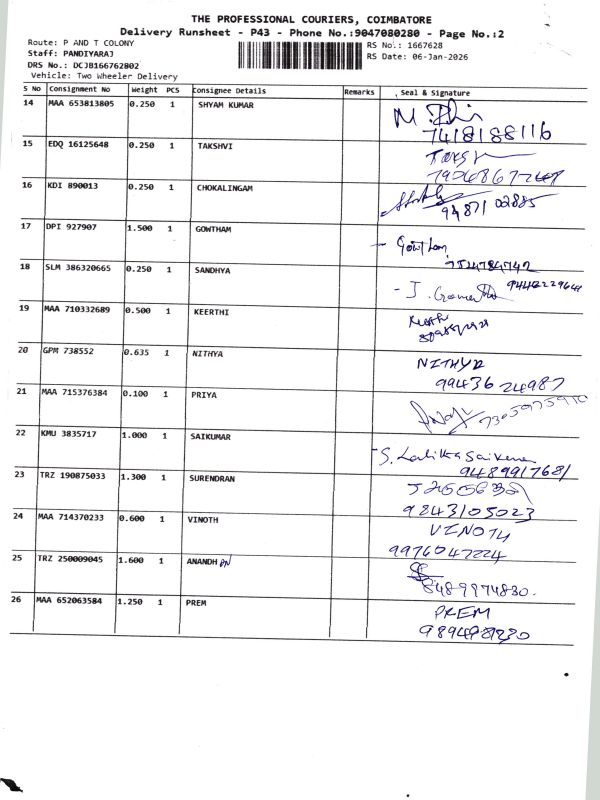 THE PROFESSIONAL COURIERS, COIMBATORE
Delivery Runsheet - P43 - Phone No.:9047080280 - Page No.:2
Route: P AND T COLONY
RS No.: 1667628
Staff: PANDIYARAJ
RS Date: 06-Jan-2026
DRS No.: DCJB166762802
Vehicle: Two Wheeler Delivery
S No Consignment No Weight PCS Consignee Details Remarks Seal & Signature
14 MAA 653813805 0.250 1 SHYAM KUMAR
7418188116
15 EDQ 16125648 0.250 1 TAKSHVI
16 KDI 890013 0.250 1 CHOKALINGAM
94871 02885
17 DPI 927907 1.500 1 GOWTHAM
18 SLM 386320665 0.250 1 SANDHYA
19 MAA 710332689 0.500 1 KEERTHI
20 GPM 738552 0.635 1 NITHYA NITHYA
99436 24987
21 MAA 715376384 0.100 1 PRIYA
22 KMU 3835717 1.000 1 SAIKUMAR
9489917681
23 TRZ 190875033 1.300 1 SURENDRAN
9843105023
24 MAA 714370233 0.600 1 VINOTH VINOTH
9976047224
25 TRZ 250009045 1.600 1 ANANDH
8489974830.
26 MAA 652063584 1.250 1 PREM PREM